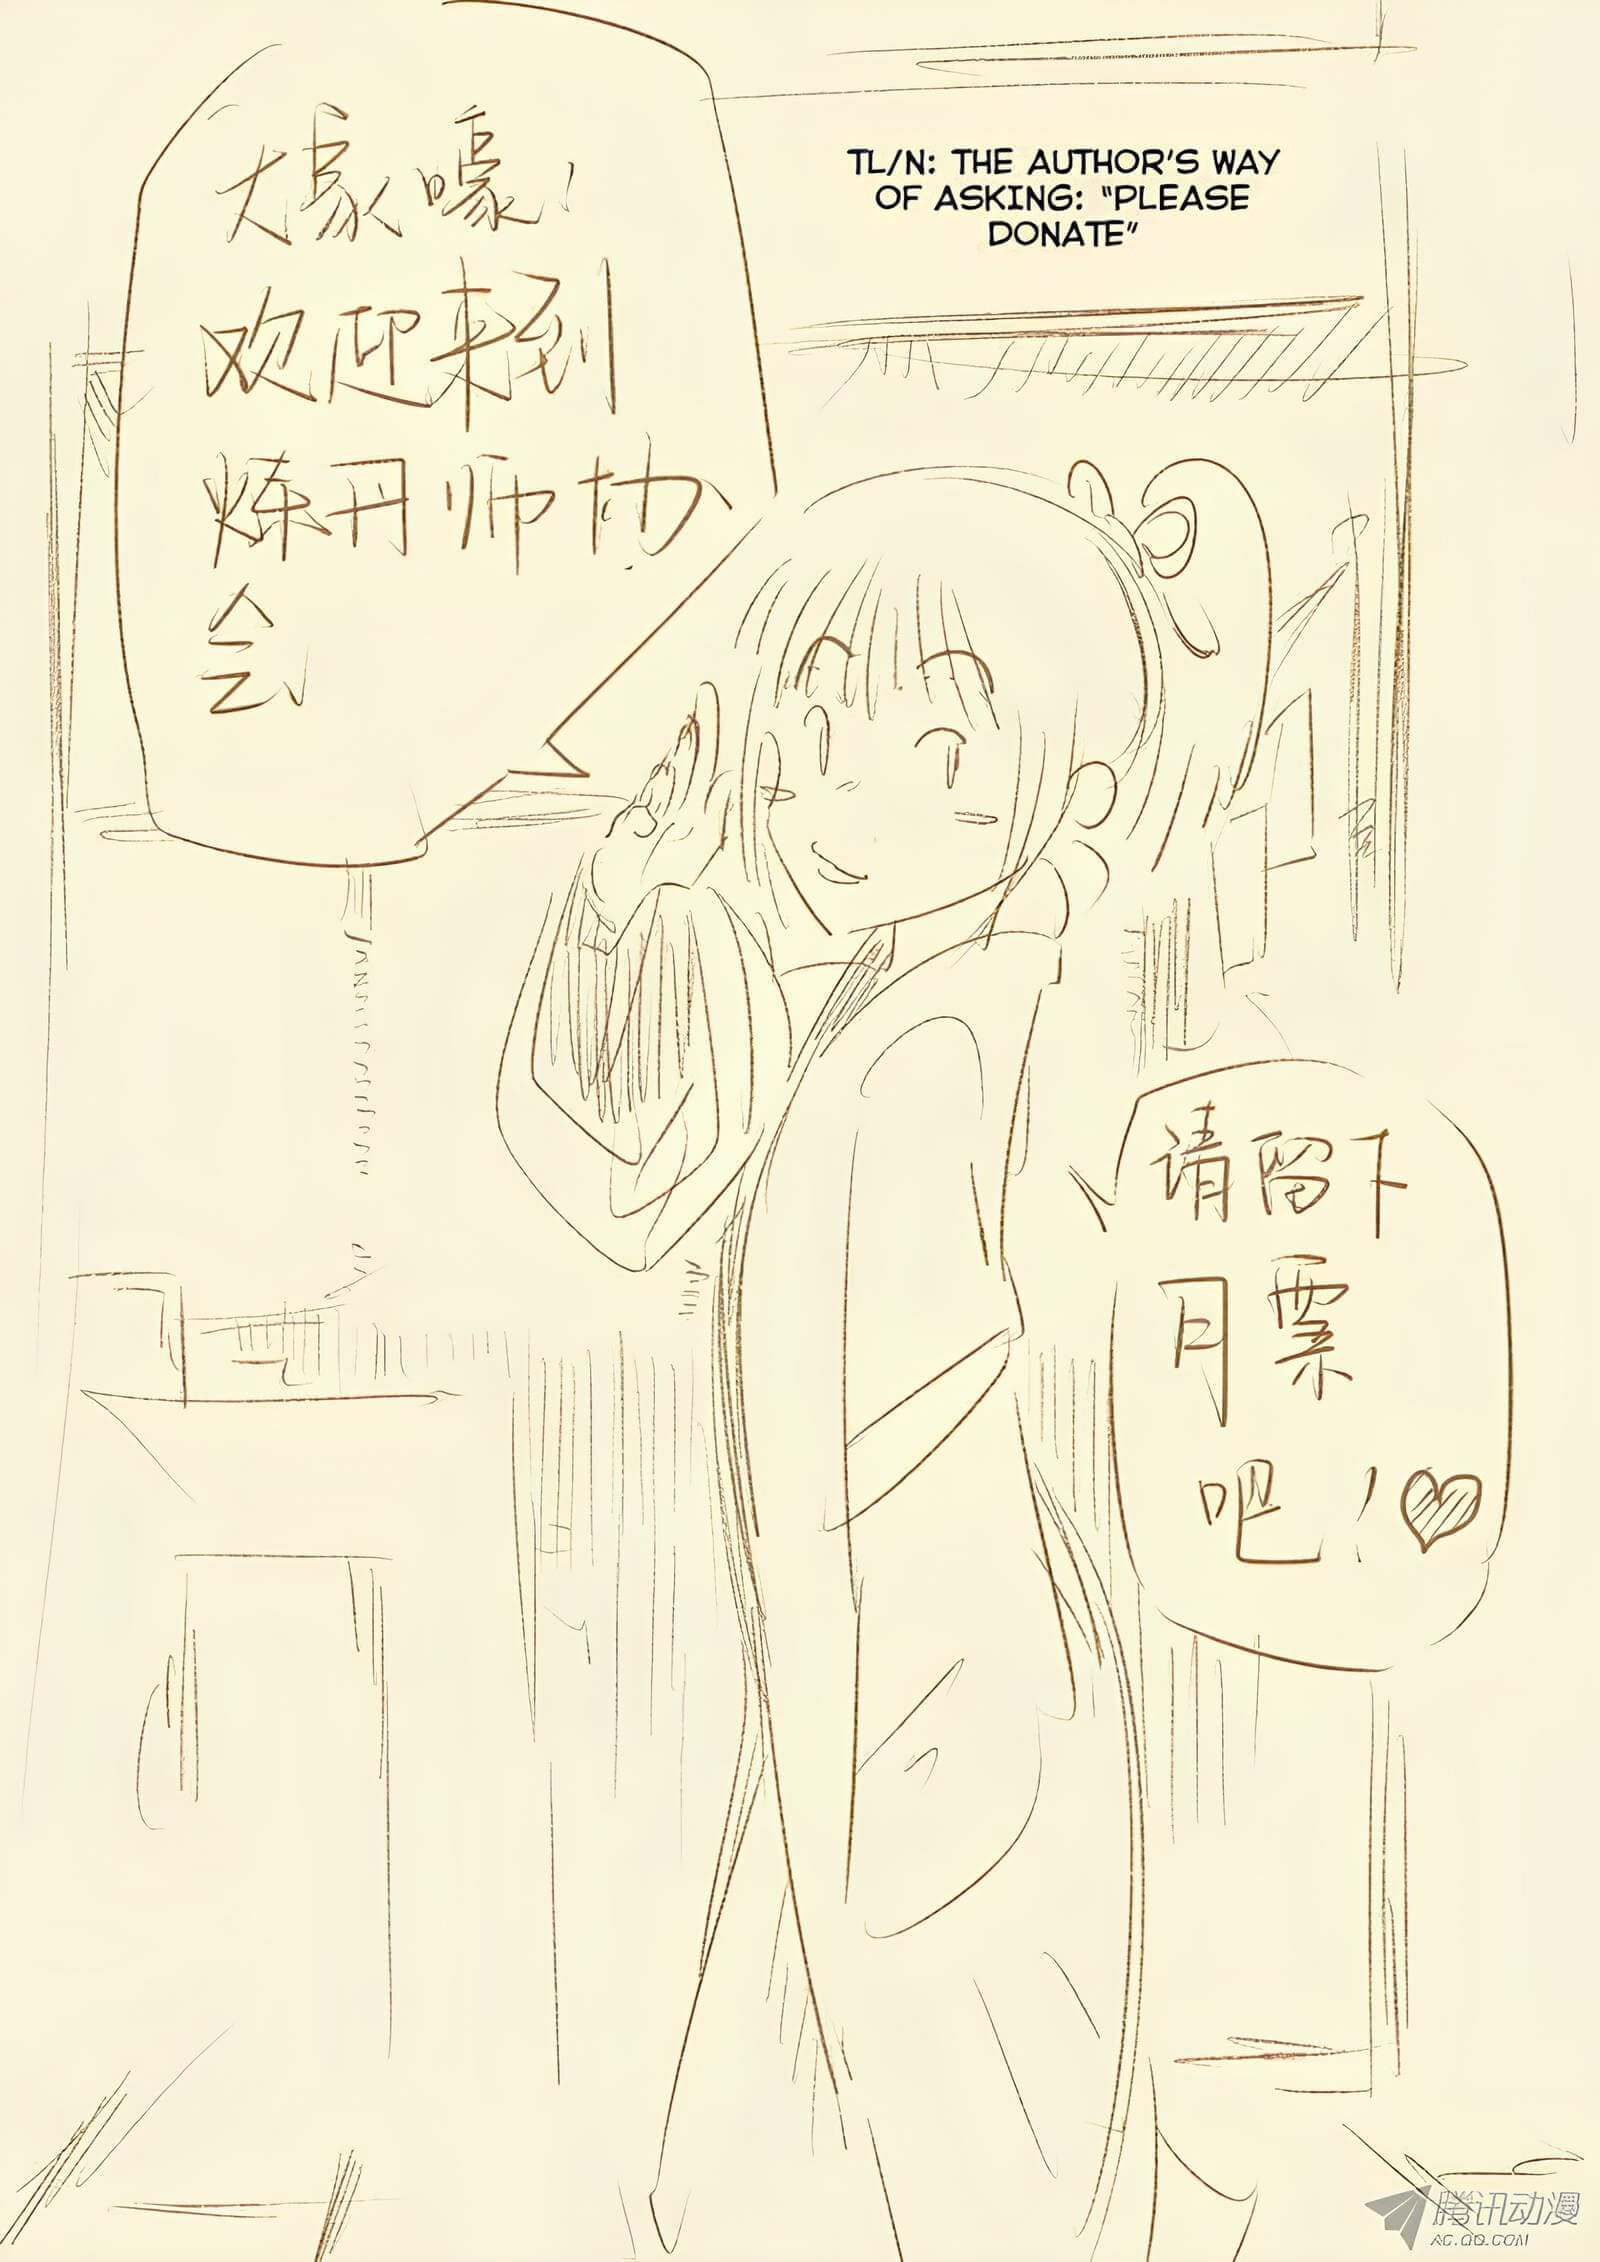 大家嚎！
欢迎来到
炼丹师协
会
TL/N: THE AUTHOR'S WAY
OF ASKING: "PLEASE
DONATE"
请留下
月票
吧！
腾讯动漫
AC.QQ.COM